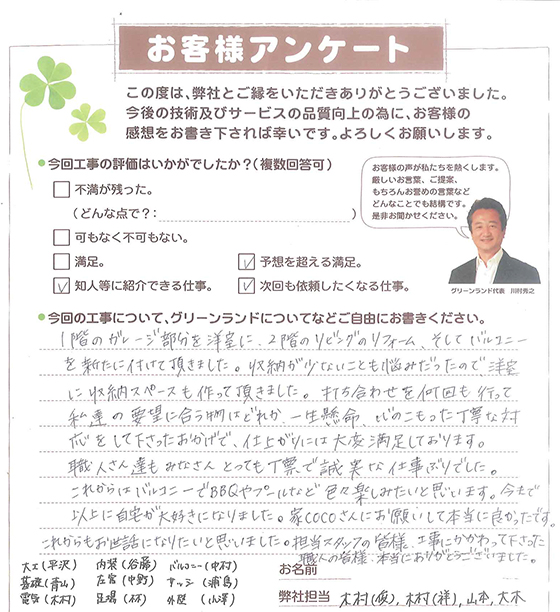 お客様アンケート
この度は、弊社とご縁をいただきありがとうございました。
今後の技術及びサービスの品質向上の為に、お客様の
感想をお書き下されば幸いです。よろしくお願いします。
今回工事の評価はいかがでしたか？(複数回答可)
不満が残った。
(どんな点で？:)
可もなく不可もない。
満足。
予想を超える満足。
知人等に紹介できる仕事。
次回も依頼したくなる仕事。
お客様の声が私たちを熱くします。
厳しいお言葉、ご提案、
もちろんお誉めの言葉など
どんなことでも結構です。
是非お聞かせください。
グリーンランド代表 川村秀之
今回の工事について、グリーンランドについてなどご自由にお書きください。
1階のガレージ部分を洋室に、2階のリビングのリフォーム、そしてバルコニー
を新たに付けて頂きました。収納が少ないことも悩みだったので洋室
に収納スペースも作って頂きました。打ち合わせを何回も行って
私達の要望に合う物はどれか、一生懸命、心のこもった丁寧な対
応をして下さったおかげで、仕上がりには大変満足しております。
職人さん達もみなさんとっても丁寧で誠実な仕事ぶりでした。
これからはバルコニーでBBQやプールなど色々楽しみたいと思います。今まで
以上に自宅が大好きになりました。家COCOさんにお願いして本当に良かったです。
これからもお世話になりたいと思いました。担当スタッフの皆様、工事にかかわって下さった
職人の皆様、本当にありがとうございました。
大工(平沢) 内装(斎藤) バルコニー(中村)
基礎(青山) 左官(中野) サッシ(浦島)
電気(木村) 足場(林) 外壁(小澤)
お名前
弊社担当 木村(俊)、木村(祥)、山本、大木